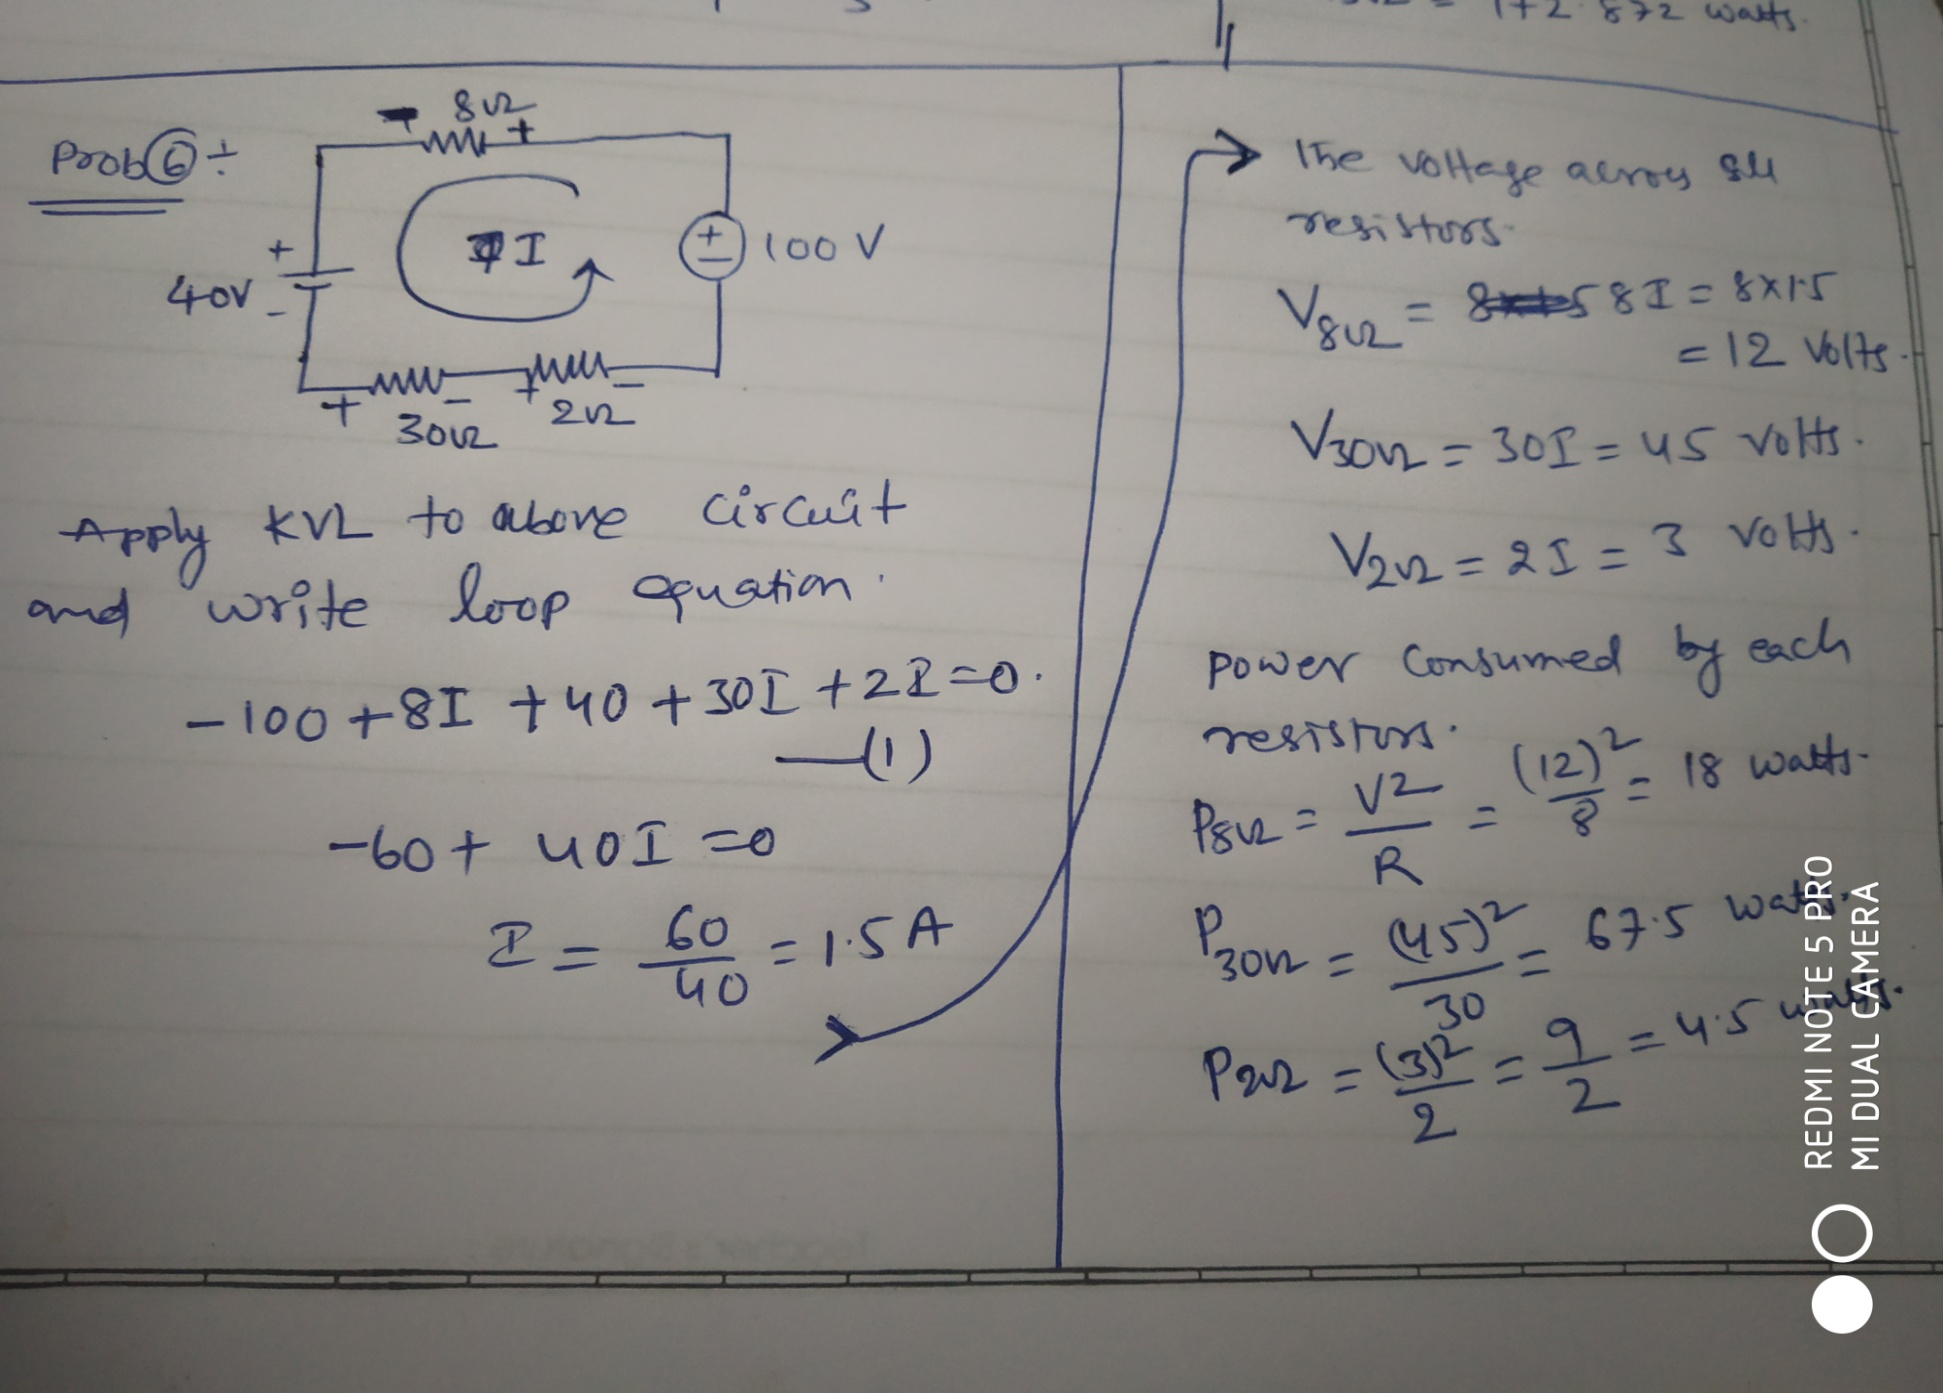 1+2.872 watts.
Prob 6 ÷
- 8Ω +
+ 40V -
I
+ - 100 V
+ 30Ω - + 2Ω -
Apply KVL to above circuit
and write loop equation.
-100+8I +40+30I+2I=0.
—(1)
-60+ 40I =0
I = 60/40 = 1.5 A
The voltage across all
resistors.
V8Ω = 8I = 8×1.5
= 12 Volts.
V30Ω = 30I = 45 Volts.
V2Ω = 2I = 3 Volts.
Power Consumed by each
resistors.
P8Ω = V²/R = (12)²/8 = 18 watts.
P30Ω = (45)²/30 = 67.5 watts.
P2Ω = (3)²/2 = 9/2 = 4.5 watts.
REDMI NOTE 5 PRO
MI DUAL CAMERA